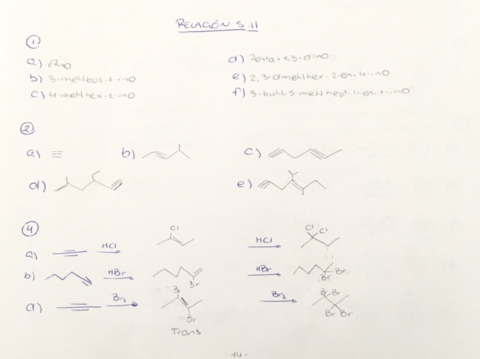 RELACIÓN S.11
1
a) etino
b) 3-metilbut-1-ino
c) 4-metilhex-2-ino
d) Penta-1,3-diino
e) 2,3-dimetilhex-2-en-4-ino
f) 3-butil-5-metilhept-4-en-1-ino
2
a) b) c)
d) e)
4
a) HCl Cl HCl Cl Cl
b) HBr Br HBr Br Br
d) Br₂ Br Br Br₂ Br Br Br Br
Trans
-14-